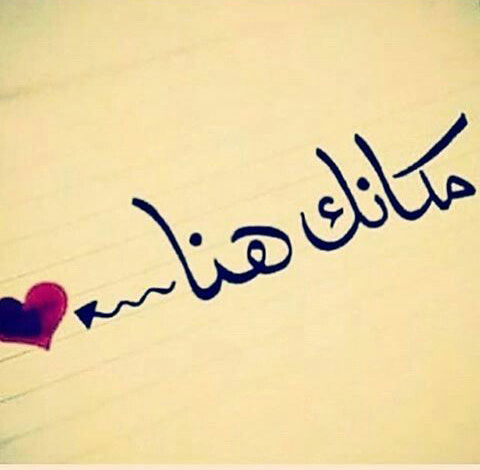 مكانك هنا